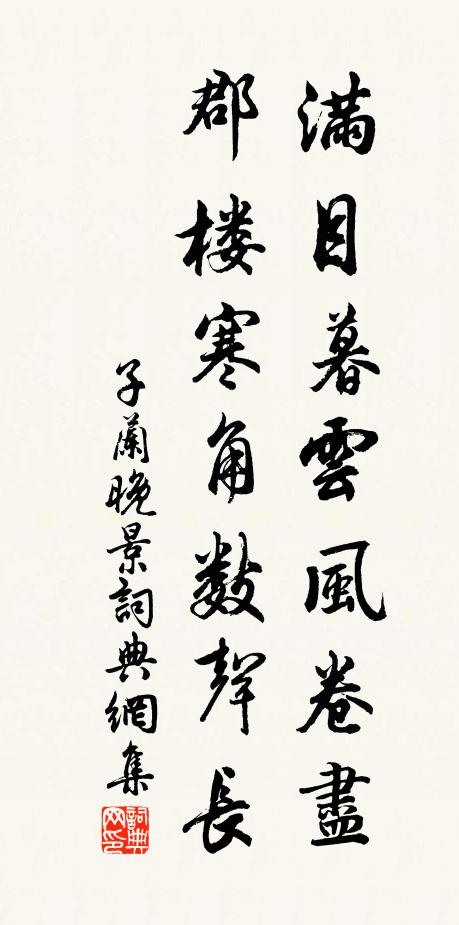 滿目暮雲風卷盡
郡楼寒角數聲長
子蘭晚景詞典網集
詞典网印